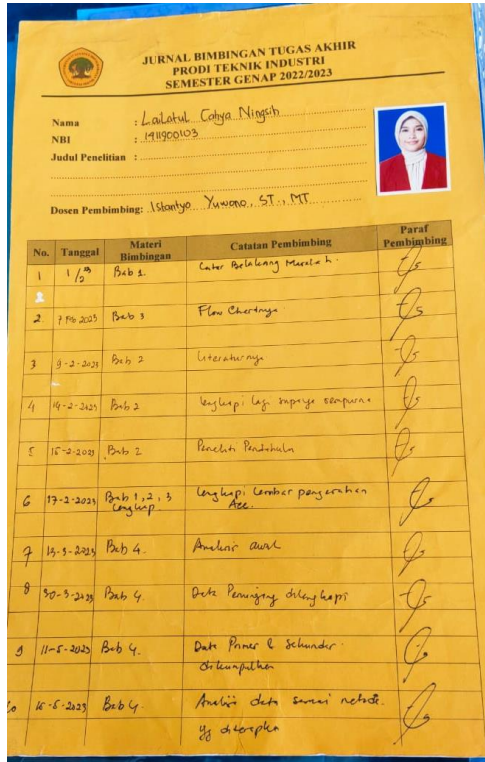 JURNAL BIMBINGAN TUGAS AKHIR
PRODI TEKNIK INDUSTRI
SEMESTER GENAP 2022/2023
Nama : Lailatul Cahya Ningsih
NBI : 1411900103
Judul Penelitian :
Dosen Pembimbing: Istantyo Yuwono, ST., MT
No. Tanggal Materi Bimbingan Catatan Pembimbing Paraf Pembimbing
1 1/2 23 Bab 1. Latar Belakang Masalah.
2 7 Feb 2023 Bab 3 Flow Chartnya
3 9-2-2023 Bab 2 Literaturnya
4 14-2-2023 Bab 2 lengkapi lagi supaya sempurna
5 15-2-2023 Bab 2 Peneliti Pendahulu
6 17-2-2023 Bab 1, 2, 3 Lengkapi Lembar pengesahan
Lengkap Acc.
7 13-3-2023 Bab 4. Analisis awal
8 30-3-2023 Bab 4. Data Penunjang dilengkapi
9 11-5-2023 Bab 4. Data Primer & Sekunder.
dikumpulkan
10 16-5-2023 Bab 4. Analisis data sesuai metode.
yg diterapkan